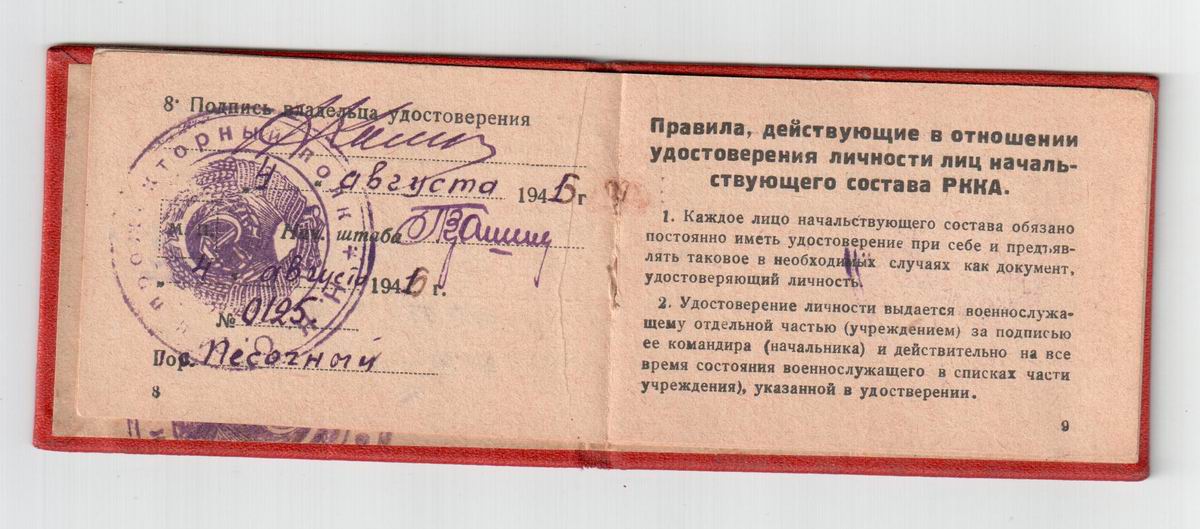 8. Подпись владельца удостоверения
„4“ августа 1945 г
М. П. Нач. штаба
„4“ августа 1945 г.
№ 0125.
Гор. Песочный
8
ПРОЖЕКТОРНЫЙ ПОЛК
Правила, действующие в отношении
удостоверения личности лиц началь-
ствующего состава РККА.
1. Каждое лицо начальствующего состава обязано
постоянно иметь удостоверение при себе и предъяв-
лять таковое в необходимых случаях как документ,
удостоверяющий личность.
2. Удостоверение личности выдается военнослужа-
щему отдельной частью (учреждением) за подписью
ее командира (начальника) и действительно на все
время состояния военнослужащего в списках части
учреждения), указанной в удостверении.
9